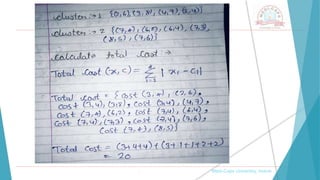 cluster → 1 {(2,6), (3,8), (4,7), (3,4)}
cluster → 2 {(7,4), (6,2), (6,4), (7,3),
(8,5), (7,6)}
calculate total cost →
Total cost (x, c) = Σ | xᵢ - cᵢ|
Total cost = { cost (3,4), (2,6),
cost (3,4), (3,8), cost (3,4), (4,7),
cost (7,4), (6,2), cost (7,4), (6,4),
cost (7,4), (7,3), cost (7,4), (7,6),
cost (7,4), (8,5)}
Total cost = (3+4+4) + (3+1+1+2+2)
= 20